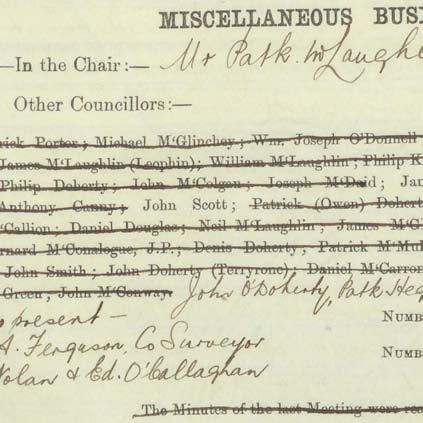 MISCELLANEOUS BUSI
In the Chair:— Mr Patk. McLaughl
Other Councillors:—
rick Porter; Michael M'Glinchey; Wm. Joseph O'Donnell
James M'Laughlin (Leophin); William M'Laughlin; Philip K
Philip Doherty; John M'Colgan; Joseph M'Daid; Jam
Anthony Canny; John Scott; Patrick (Owen) Dohert
'Callion; Daniel Douglas; Neil M'Laughlin; James M'G
ernard M'Conalogue, J.P.; Denis Doherty; Patrick M'Mul
John Smith; John Doherty (Terryrone); Daniel M'Carron
Green; John M'Conway. John O'Doherty, Patk Heg
o present—
NUMB
A. Ferguson, Co Surveyor
NUMB
Nolan & Ed. O'Callaghan
The Minutes of the last Meeting were rea